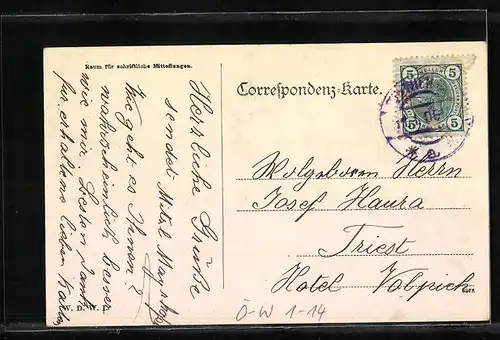 Raum für schriftliche Mitteilungen.
Correspondenz-Karte.
5 5
5 5
Herzliche Grüße
sendet Mitzl
Wie geht es Ihnen?
wahrscheinlich besser
wie mir. Besten Dank
für erhaltene lieben Karte
Wolgeborn Herrn
Josef Haura
Triest
Hotel Volpich
W. D. W.
Ö-W 1-14